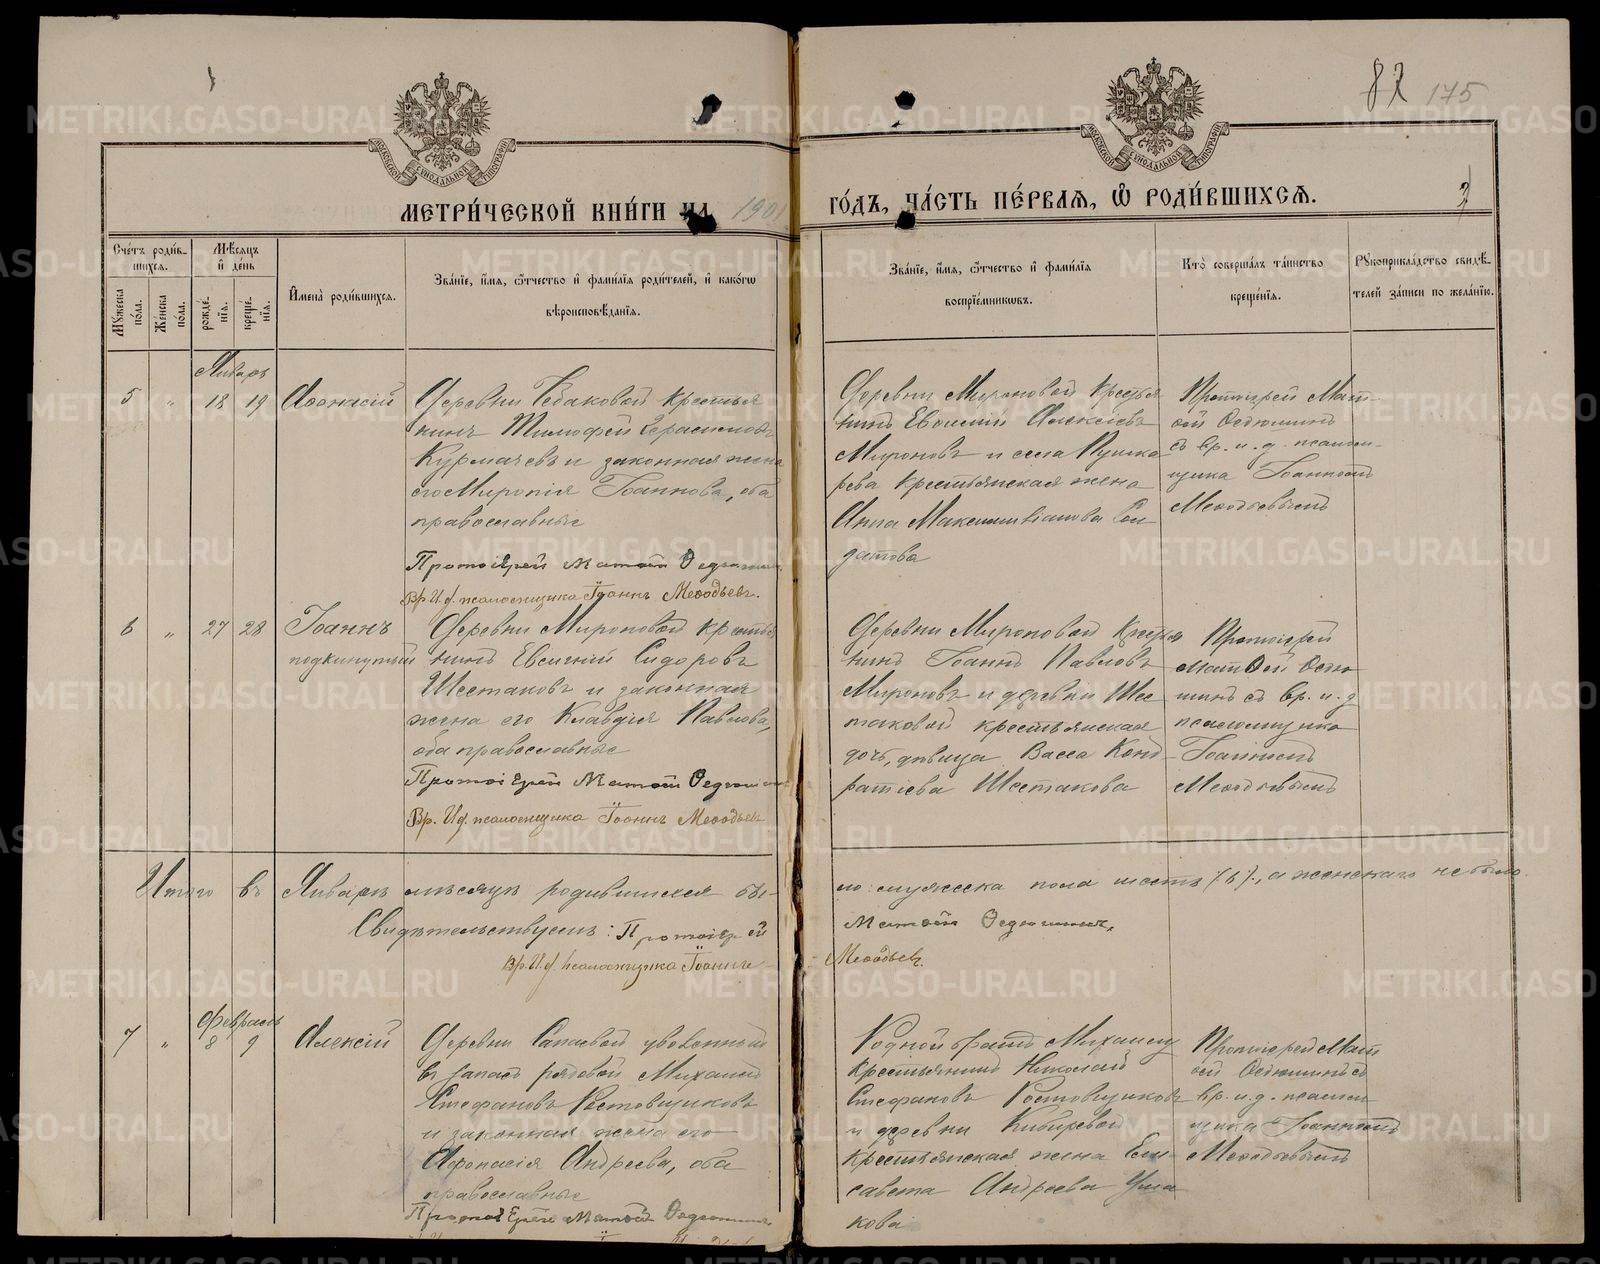 87 175
МЕТРИ́ЧЕСКОЙ КНИ́ГИ НА 1901 ГО́ДЪ, ЧА́СТЬ ПЕ́РВАЯ, Ѿ РОДИ́ВШИХСЯ.
Сче́тъ роди́в-
шихся.
Мѣ́сяцъ
и́ де́нь
Му́жеска
по́ла.
Же́нска
по́ла.
рожде́-
нїя.
креще́-
нїя.
Имена̀ роди́вшихся.
Зва́нїе, и́мя, ѻ҆́тчество и́ фами́лїя роди́телей, и́ како́гѡ
вѣроисповѣ́данїя.
Зва́нїе, и́мя, ѻ҆́тчество и́ фами́лїя
воспрїе́мниковъ.
Кто̀ соверша́лъ та́инство
креще́нїя.
Рукоприкла́дство свидѣ́-
телей за́писи по жела́нїю.
Январь
5 „ 18 19 Аѳонасій
Деревни Крестья
нинъ Тимофей Герасимовъ
Курмачевъ и законная жена
его Миропія Іоаннова, оба
православные
Протоіерей Матѳей Ѳедюшинъ
Вр. И. д. псаломщика Іоаннъ Меѳодьевъ.
Деревни Мироновой Крестья
нинъ Евѳимій Алексіевъ
Мироновъ и села Пушка
рева Крестьянская жена
Анна Максимиліанова Сол
датова
Протоіерей Мат-
ѳей Ѳедюшинъ
съ вр. и. д. псалом-
щика Іоанномъ
Меѳодьевымъ
6 „ 27 28 Іоаннъ
подкинутый
Деревни Мироновой крестья
нинъ Евгеній Сидоровъ
Шестаковъ и законная
жена его Клавдія Павлова,
оба православные
Протоіерей Матѳей Ѳедюшинъ
Вр. И. д. псаломщика Іоаннъ Меѳодьевъ
Деревни Мироновой Крестья
нинъ Іоаннъ Павловъ
Мироновъ и деревни Шес
таковой крестьянская
дочь, дѣвица Васса Конд-
ратіева Шестакова
Протоіерей
Матѳей Ѳедю
шинъ съ вр. и. д
псаломщика
Іоанномъ
Меѳодьевымъ
Итого въ Январѣ мѣсяцѣ родившихся бы-
ло: мужеска пола шесть /6/, а женскаго не было.
Свидѣтельствуемъ: Протоіерей Матѳей Ѳедюшинъ,
Вр. И. д. псаломщика Іоаннъ Меѳодьевъ.
Февраль
7 „ 8 9 Алексій
Деревни уволенный
въ запасъ рядовой Михаилъ
Стефановъ Ростовщиковъ
и законная жена его
Афонасія Андреева, оба
православные
Протоіерей Матѳей Ѳедюшинъ
Родной братъ Михаилу
крестьянинъ Николай
Стефановъ Ростовщиковъ
и деревни Кибиревой
Крестьянская жена Ели-
савета Андреева Уша
кова
Протоіерей Мат
ѳей Ѳедюшинъ съ
вр. и. д. псалом
щика Іоанномъ
Меѳодьевымъ